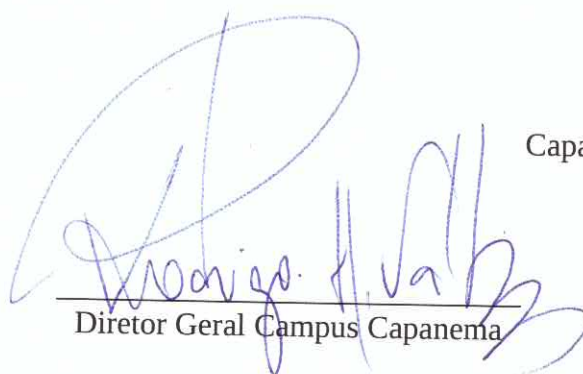 Capa
Rodrigo H.
Diretor Geral Campus Capanema